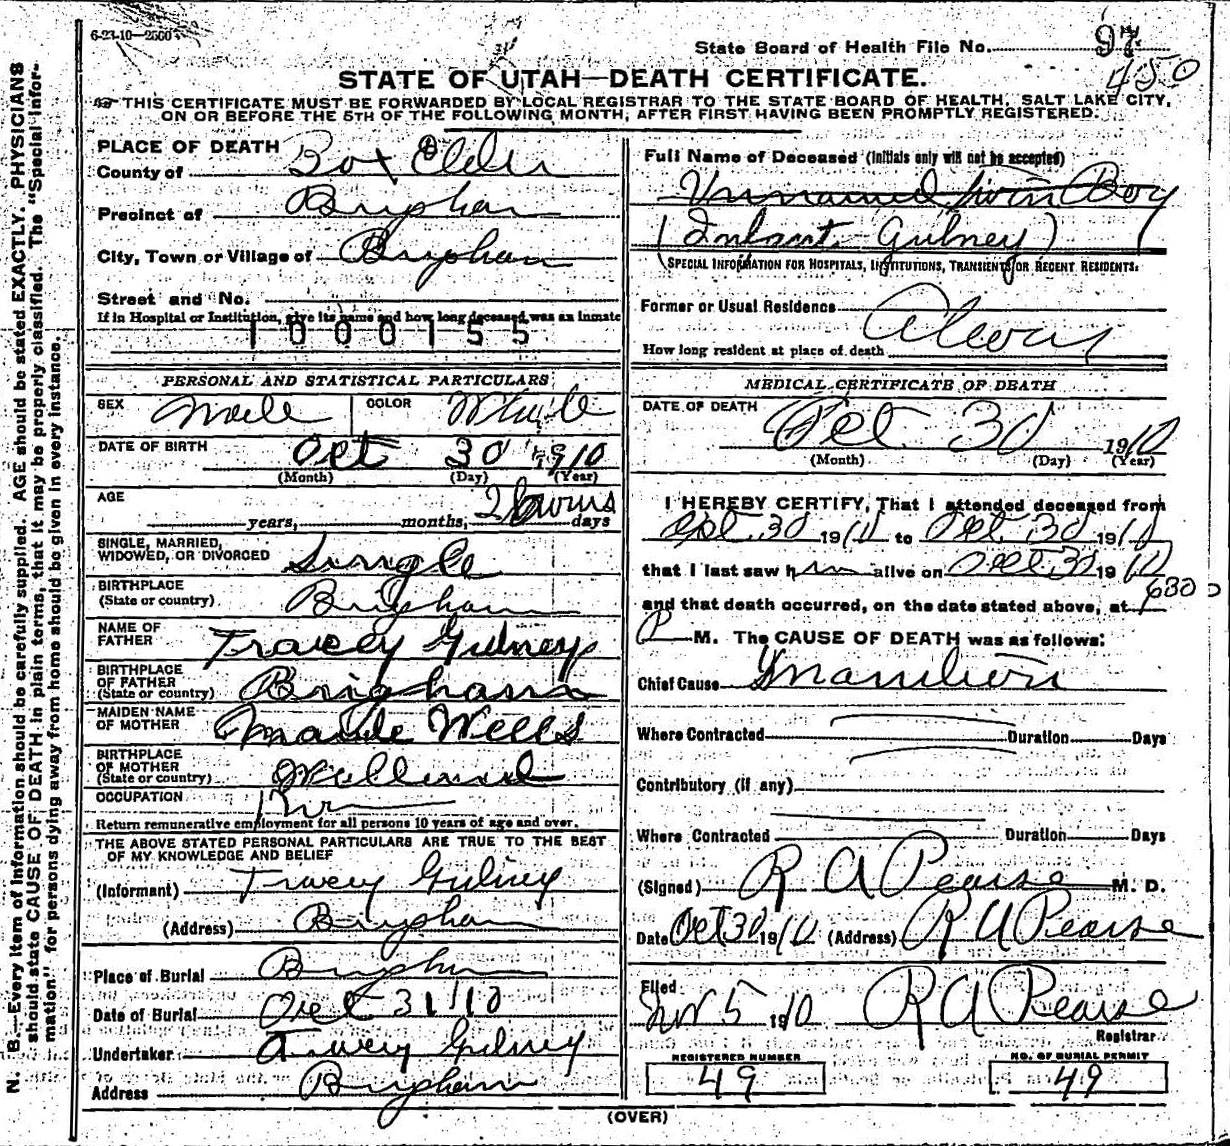 6-23-10—2500
State Board of Health File No. 97
450
STATE OF UTAH—DEATH CERTIFICATE.
THIS CERTIFICATE MUST BE FORWARDED BY LOCAL REGISTRAR TO THE STATE BOARD OF HEALTH, SALT LAKE CITY,
ON OR BEFORE THE 5TH OF THE FOLLOWING MONTH, AFTER FIRST HAVING BEEN PROMPTLY REGISTERED.
N. B.—Every item of information should be carefully supplied. AGE should be stated EXACTLY. PHYSICIANS
should state CAUSE OF DEATH in plain terms, that it may be properly classified. The "Special Infor-
mation" for persons dying away from home should be given in every instance.
PLACE OF DEATH
County of Box Elder
Precinct of Brigham
City, Town or Village of Brigham
Street and No.
If in Hospital or Institution, give its name and how long deceased was an inmate
1000155
PERSONAL AND STATISTICAL PARTICULARS
SEX Male COLOR White
DATE OF BIRTH Oct 30 1910
(Month) (Day) (Year)
AGE
years, months, 2 hours days
SINGLE, MARRIED,
WIDOWED, OR DIVORCED Single
BIRTHPLACE
(State or country) Brigham
NAME OF
FATHER Tracey Gulney
BIRTHPLACE
OF FATHER
(State or country) Brigham
MAIDEN NAME
OF MOTHER Maude Wells
BIRTHPLACE
OF MOTHER
(State or country) Willard
OCCUPATION
Return remunerative employment for all persons 10 years of age and over.
THE ABOVE STATED PERSONAL PARTICULARS ARE TRUE TO THE BEST
OF MY KNOWLEDGE AND BELIEF
(Informant) Tracey Gulney
(Address) Brigham
Place of Burial Brigham
Date of Burial Oct 31 1910
Undertaker Tracey Gulney
Address Brigham
Full Name of Deceased (Initials only will not be accepted)
Unnamed Twin Boy
(Infant Gulney)
(SPECIAL INFORMATION FOR HOSPITALS, INSTITUTIONS, TRANSIENTS OR RECENT RESIDENTS.
Former or Usual Residence
How long resident at place of death Always
MEDICAL CERTIFICATE OF DEATH
DATE OF DEATH Oct 30 1910
(Month) (Day) (Year)
I HEREBY CERTIFY, That I attended deceased from
Oct 30 1910 to Oct 30 1910
that I last saw him alive on Oct 30 1910
and that death occurred, on the date stated above, at 630
P M. The CAUSE OF DEATH was as follows:
Chief Cause Inanition
Where Contracted Duration Days
Contributory (if any)
Where Contracted Duration Days
(Signed) R A Pearse M. D.
Date Oct 30 1910 (Address) R A Pearse
Filed
Nov 5 1910 R A Pearse
Registrar
REGISTERED NUMBER
49
NO. OF BURIAL PERMIT
49
(OVER)